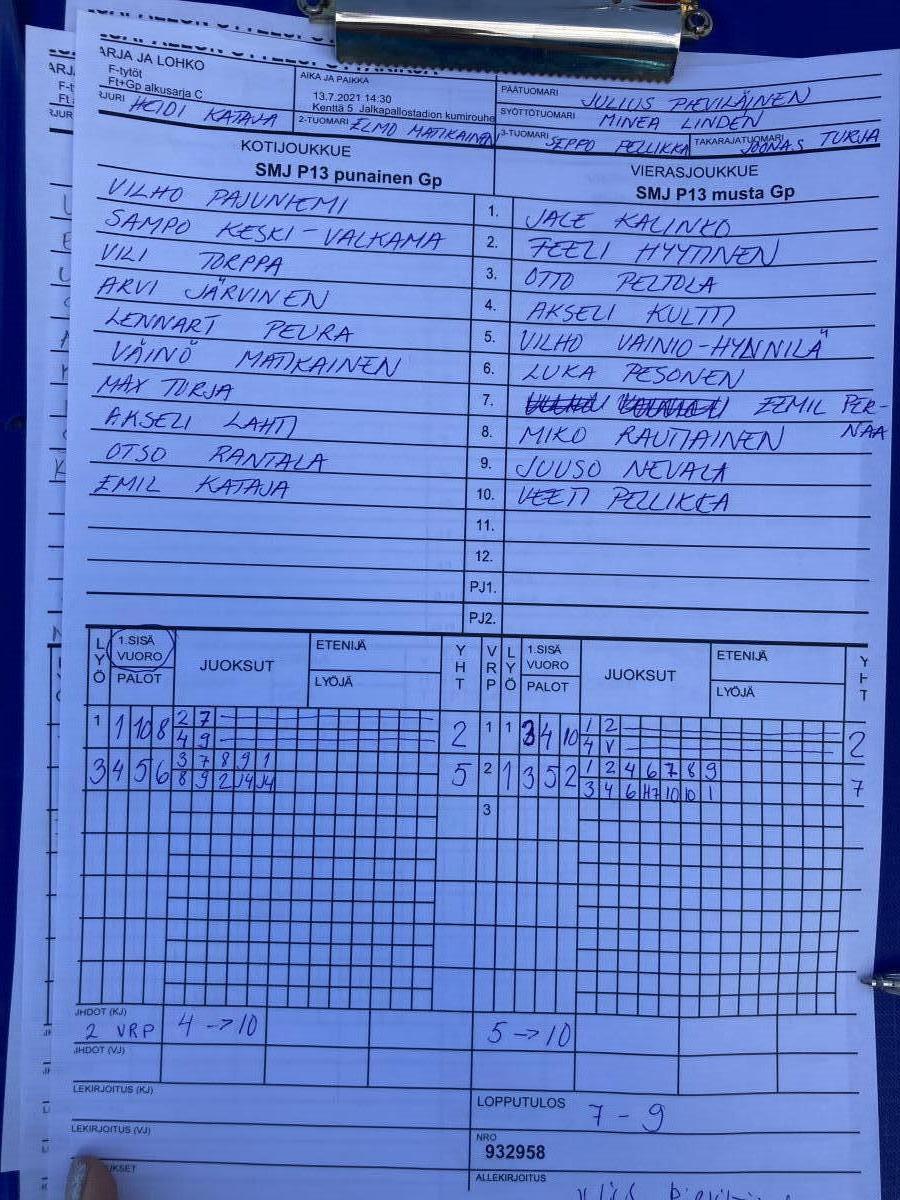 ARJA JA LOHKO
F-tytöt
Ft+Gp alkusarja C
AIKA JA PAIKKA
13.7.2021 14:30
Kenttä 5 Jalkapallostadion kumirouhe
PÄÄTUOMARI JULIUS PIEVILÄINEN
SYÖTTÖTUOMARI MINEA LINDEN
RJURI HEIDI KATAJA
2-TUOMARI ELMO MATIKAINEN
3-TUOMARI SEPPO PELLIKKA
TAKARAJATUOMARI JOONAS TURJA
KOTIJOUKKUE
SMJ P13 punainen Gp
VIERASJOUKKUE
SMJ P13 musta Gp
VILHO PAJUNIEMI 1. JALE KALINKO
SAMPO KESKI-VALKAMA 2. EELI HYYTINEN
VILI TORPPA 3. OTTO PELTOLA
ARVI JÄRVINEN 4. AKSELI KULTTI
LENNART PEURA 5. VILHO VAINIO-HYNNILÄ
VÄINÖ MATIKAINEN 6. LUKA PESONEN
MAX TURJA 7. EEMIL PER-
NAA
AKSELI LAHTI 8. MIKO RAUTIAINEN
OTSO RANTALA 9. JUUSO NEVALA
EMIL KATAJA 10. VEETI PELLIKKA
11.
12.
PJ1.
PJ2.
LYÖ 1.SISÄ VUORO PALOT JUOKSUT ETENIJÄ LYÖJÄ YHT VRP LYÖ 1.SISÄ VUORO PALOT JUOKSUT ETENIJÄ LYÖJÄ YHT
1 1 10 8 2 7 2 1 1 3 4 10 1 2 2
4 9 4 V
3 4 5 6 3 7 8 9 1 5 2 1 3 5 2 1 2 4 6 7 8 9 7
8 9 2 J4 J4 3 4 6 H7 10 10 1
3
JHDOT (KJ)
2 VRP 4 -> 10 5 -> 10
JHDOT (VJ)
LEKIRJOITUS (KJ)
LOPPUTULOS 7 - 9
LEKIRJOITUS (VJ)
NRO
932958
UKSET
ALLEKIRJOITUS